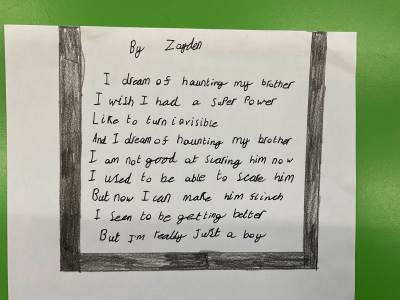 By Zayden
I dream of haunting my brother
I wish I had a super power
Like to turn invisible
And I dream of haunting my brother
I am not good at scaring him now
I used to be able to scare him
But now I can make him flinch
I seem to be getting better
But I'm really just a boy